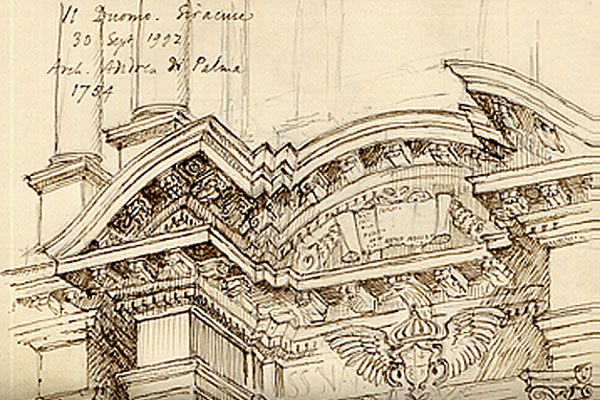 Il Duomo. Siracuse
30 Sept 1992
Arch. Andrea di Palma
1754